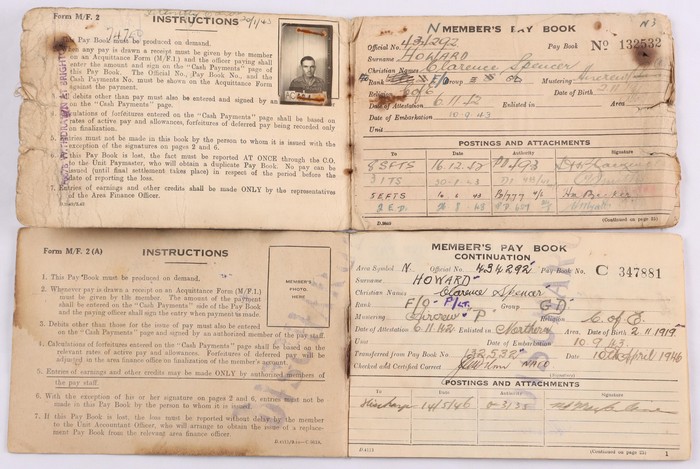 Form M/F. 2
INSTRUCTIONS
1. This Pay Book must be produced on demand.
When any pay is drawn a receipt must be given by the member
on an Acquittance Form (M/F.1) and the officer paying will
enter the amount and sign on the "Cash Payments" page of
this Pay Book. The Official No., Pay Book No., and the
Cash Payments No. must be shown on the Acquittance Form
against the payment.
All debits other than cash must also be entered and signed by an
on the "Cash Payments" page.
Calculations of forfeitures entered on the Cash Payments page shall be based on
rates of active pay and allowances, forfeitures of deferred pay being recorded only
on finalization.
5. Entries must not be made in this book by the person to whom it is issued with the
exception of the signatures on pages 2 and 6.
6. If this Pay Book is lost, the fact must be reported AT ONCE through the C.O.
to the Unit Paymaster, who will obtain a duplicate Pay Book. No pay can be
issued (until final settlement takes place) in respect of the period before the
date of reporting the loss.
7. Entries of earnings and other credits shall be made ONLY by the representatives
of the Area Finance Officer.
MEMBER'S PAY BOOK
Official No. 434292 Pay Book No 132532
Surname HOWARD
Christian Names Clarence Spencer
Rank F/O Group Mustering Aircrew
Religion C of E Date of Birth 2.11.19
Date of Attestation 6.11.42 Enlisted in Area
Date of Embarkation 10.9.43
Unit
POSTINGS AND ATTACHMENTS
To Date Authority Signature
8 SFTS 16.12.42
(Continued on page 23)
Form M/F. 2 (A)
INSTRUCTIONS
MEMBER'S
PHOTO
HERE
1. This Pay Book must be produced on demand.
2. Whenever pay is drawn a receipt in Acquittance Form (M/F.1) must be
given by the member. The amount of the payment
shall be entered on the "Cash Payments" side of the Pay Book
and the paying officer shall sign the entry when payment is made
3. Debits other than those for the issue of pay must also be entered
on "Cash Payments" page and signed by an authorized member of the pay staff.
4. Calculations of forfeitures entered on the "Cash Payments" page shall be based on the
relevant rates of active pay and allowances. Forfeitures of deferred pay will be
adjusted in the area finance office on finalization of the member's account.
5. Entries of earnings and other credits may be made ONLY by authorized members of
the pay staff.
6. With the exception of his or her signature on pages 2 and 6, entries must not be
made in this Pay Book by the person to whom it is
7. If this Pay Book is lost, the loss must be reported without delay by the member
to the Unit Accountant Officer, who will arrange to obtain the issue of a replace-
ment Pay Book from the relevant area finance officer.
MEMBER'S PAY BOOK
CONTINUATION
Area Symbol N. Official No. 434292 Pay Book No. C 347881
Surname HOWARD
Christian Names Clarence Spencer
Rank F/O P/LT. Group GD
Mustering Aircrew P Religion C of E.
Date of Attestation 6.11.42 Enlisted in Northern Area, Date of Birth 2.11.1919
Unit Date of Embarkation 10.9.43.
Transferred from Pay Book No. 132532 Date 10th April 1946
Checked and Certified Correct
(Signature)
POSTINGS AND ATTACHMENTS
To Date Authority Signature
Discharge 14/5/46 0-3135
(Continued on page 23)
1